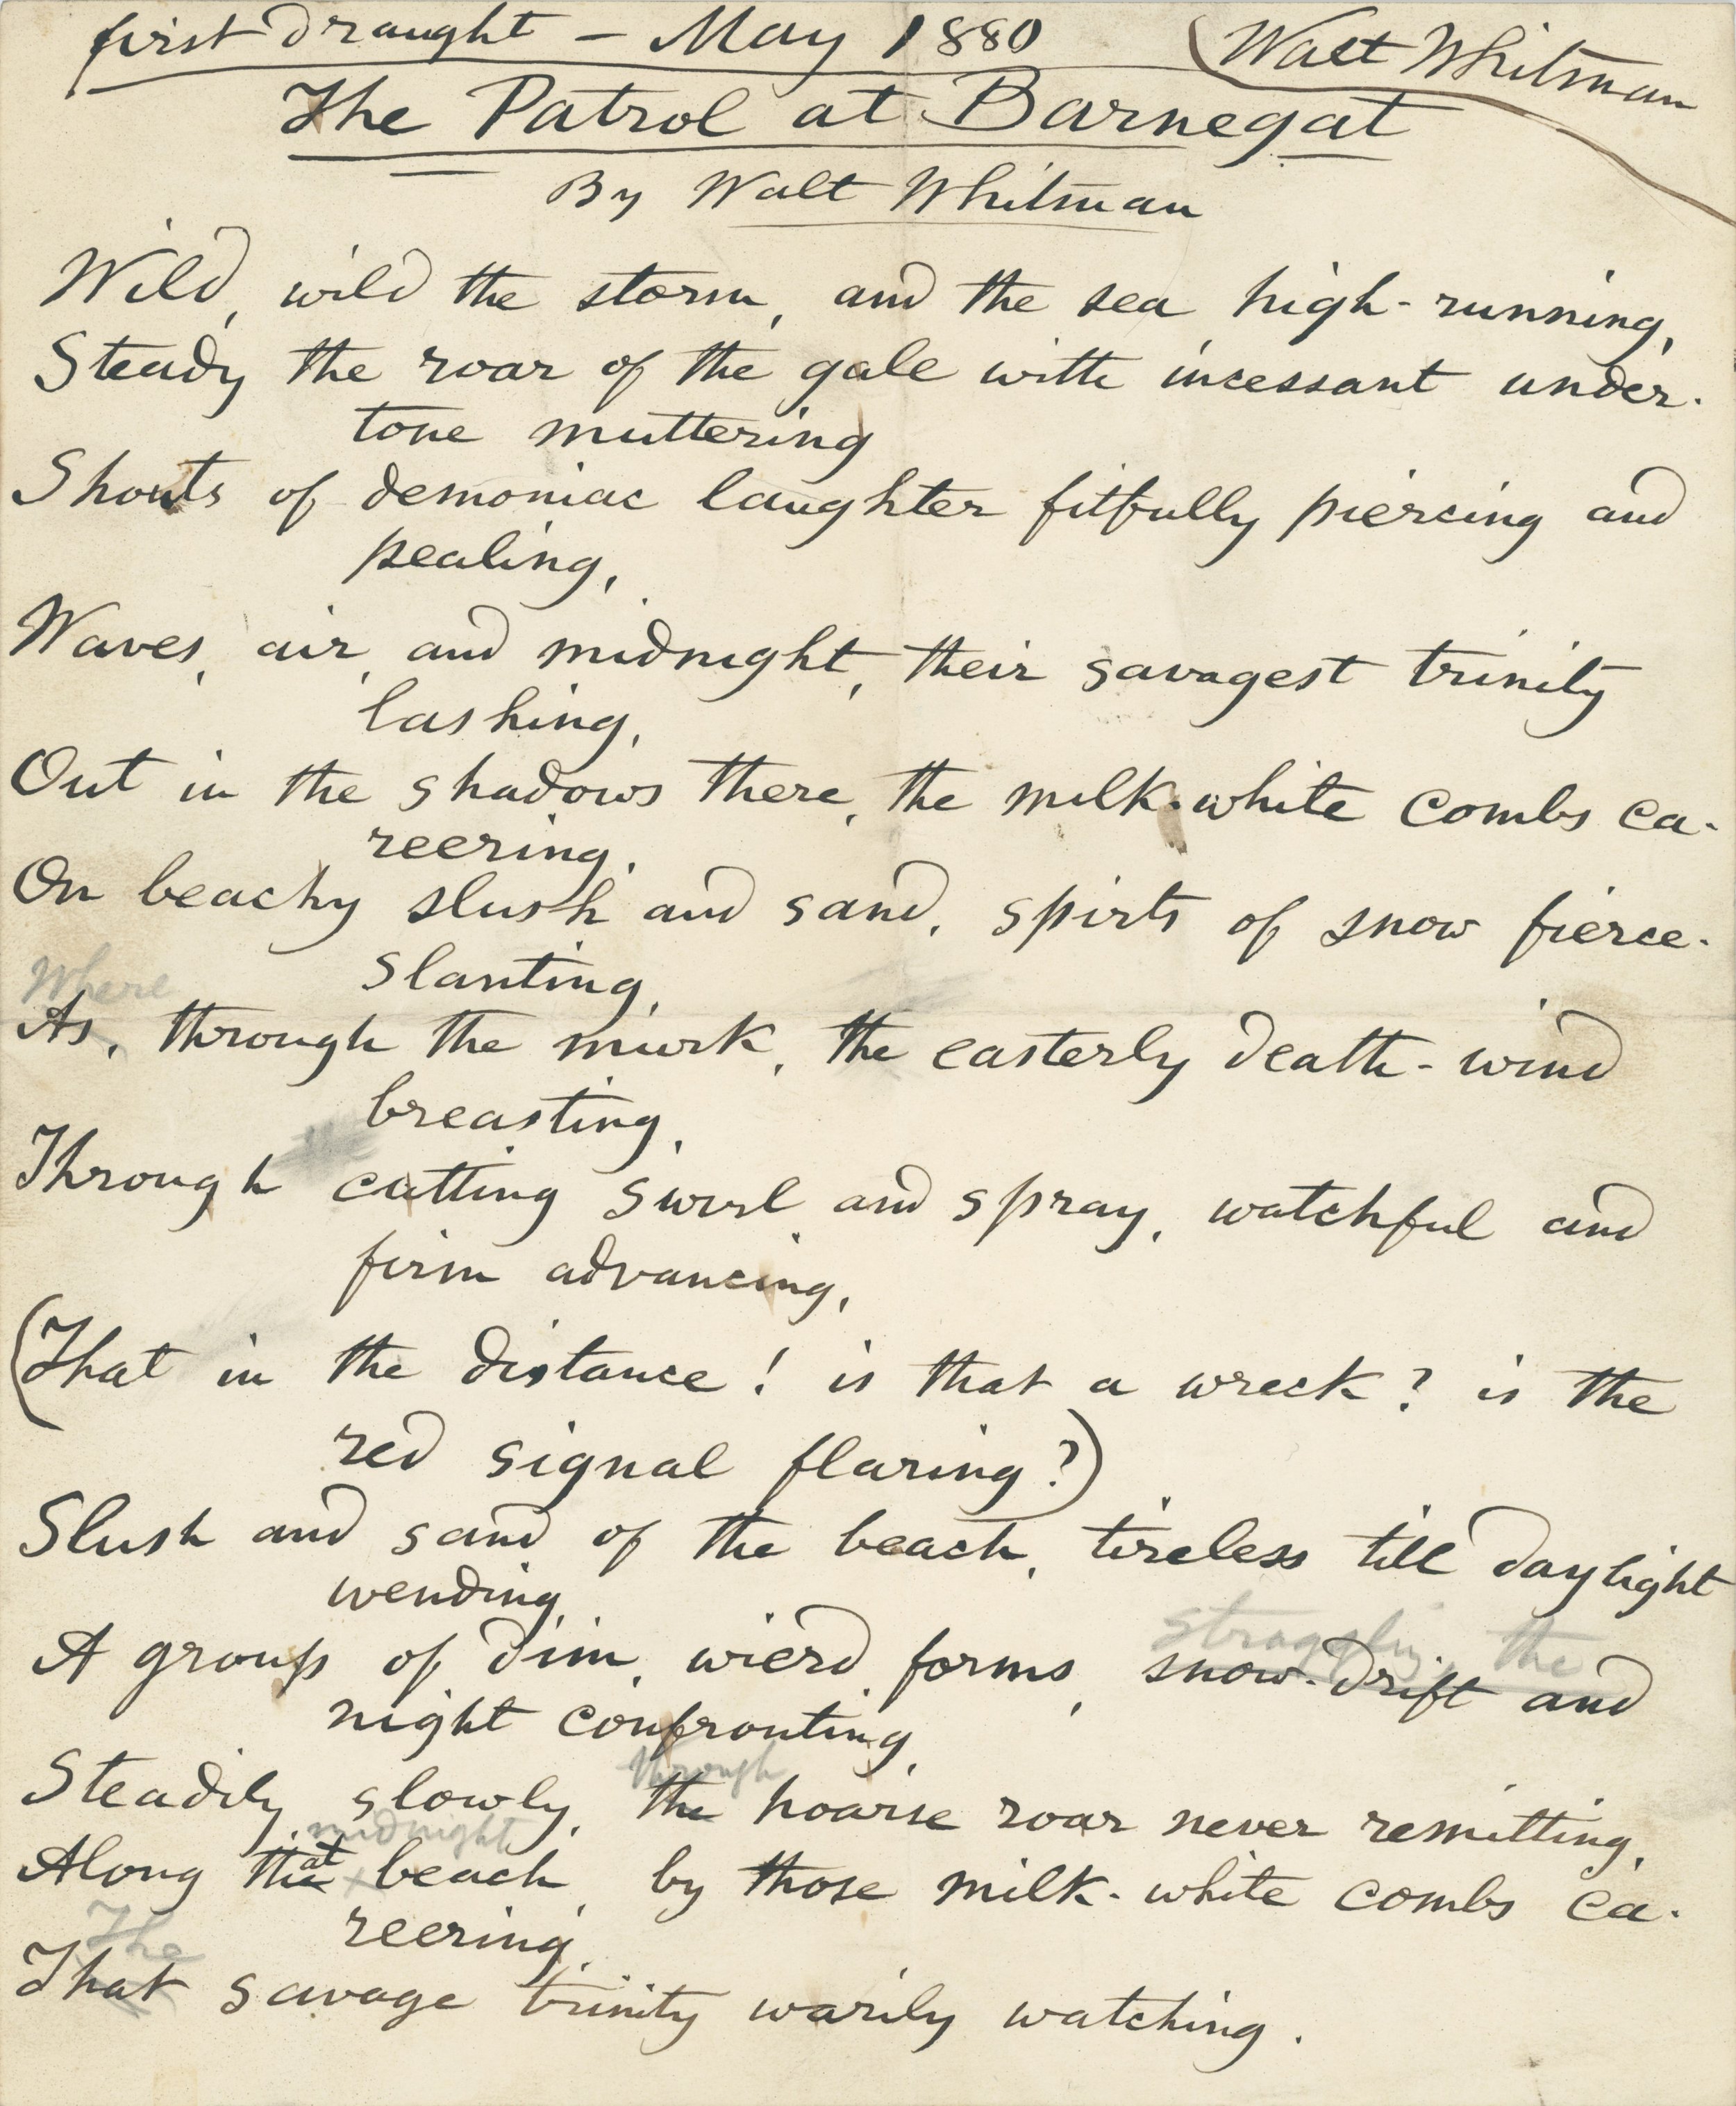 first draught – May 1880
Walt Whitman
The Patrol at Barnegat
By Walt Whitman
Wild, wild the storm, and the sea high-running,
Steady the roar of the gale with incessant under-
tone muttering
Shouts of demoniac laughter fitfully piercing and
pealing,
Waves, air, and midnight, their savagest trinity
lashing,
Out in the shadows there, the milk-white combs ca-
reering,
On beachy slush and sand, spirts of snow fierce-
slanting,
Where
As, through the murk, the easterly death-wind
breasting,
Through cutting swirl and spray, watchful and
firm advancing,
(That in the distance! is that a wreck? is the
red signal flaring?)
Slush and sand of the beach, tireless till daylight
wending,
A group of dim, wierd forms, snow-drift and
struggling, the
night confronting,
through
Steadily, slowly, the hoarse roar never remitting,
midnight
Along that beach, by those milk-white combs ca-
reering,
The
That savage trinity warily watching.